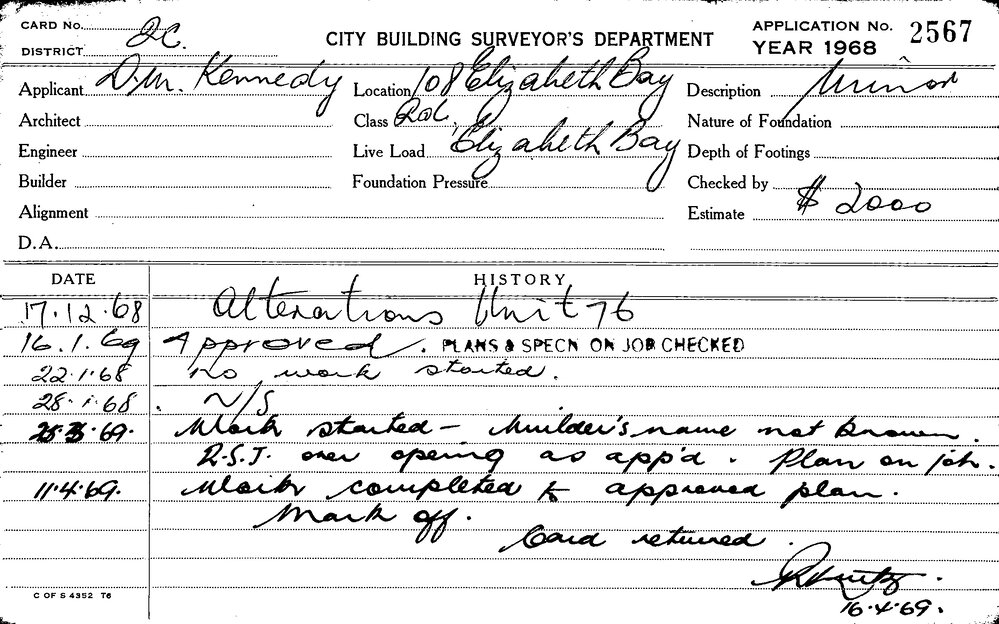 CARD No. 2C.
DISTRICT
CITY BUILDING SURVEYOR'S DEPARTMENT
APPLICATION No. 2567
YEAR 1968
Applicant D.M. Kennedy
Location 108 Elizabeth Bay
Description Minor
Architect
Class Rd.
Nature of Foundation
Engineer
Live Load Elizabeth Bay
Depth of Footings
Builder
Foundation Pressure
Checked by
Alignment
Estimate $ 2000
D.A.
DATE HISTORY
17.12.68 Alterations Unit 76
16.1.69 Approved. PLANS & SPECN ON JOB CHECKED
22.1.68 no work started.
28.1.68 N/S
25.3.69. Work started - builder's name not known.
R.S.J. over opening as app'd. Plan on job.
11.4.69. Work completed to approved plan.
Mark off.
Card returned.
16.4.69.
C OF S 4352 T6